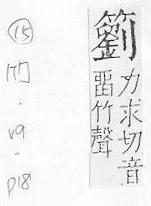 ⑮
v9
-
p18
力求切音
畱竹聲